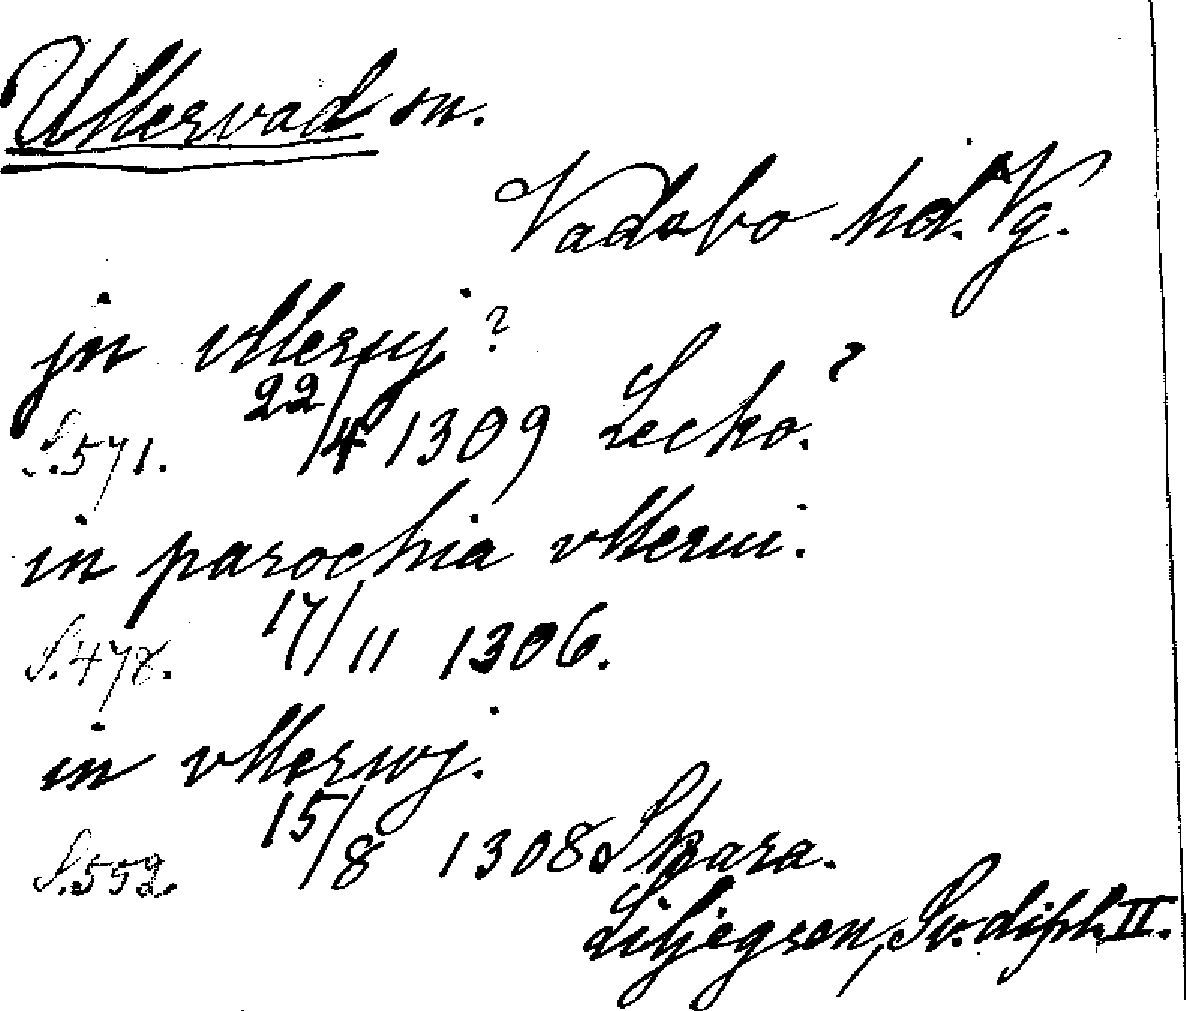 Ullervad sn.
Vadsbo hd. Vg.
jn vllerуj?
22/4 1309 Lecko?
S. 571.
in parochia vllerui.
S. 478. 17/11 1306.
in vllerwj.
S. 552. 15/8 1308 Skara.
Liljegren, Sv. dipl. II.